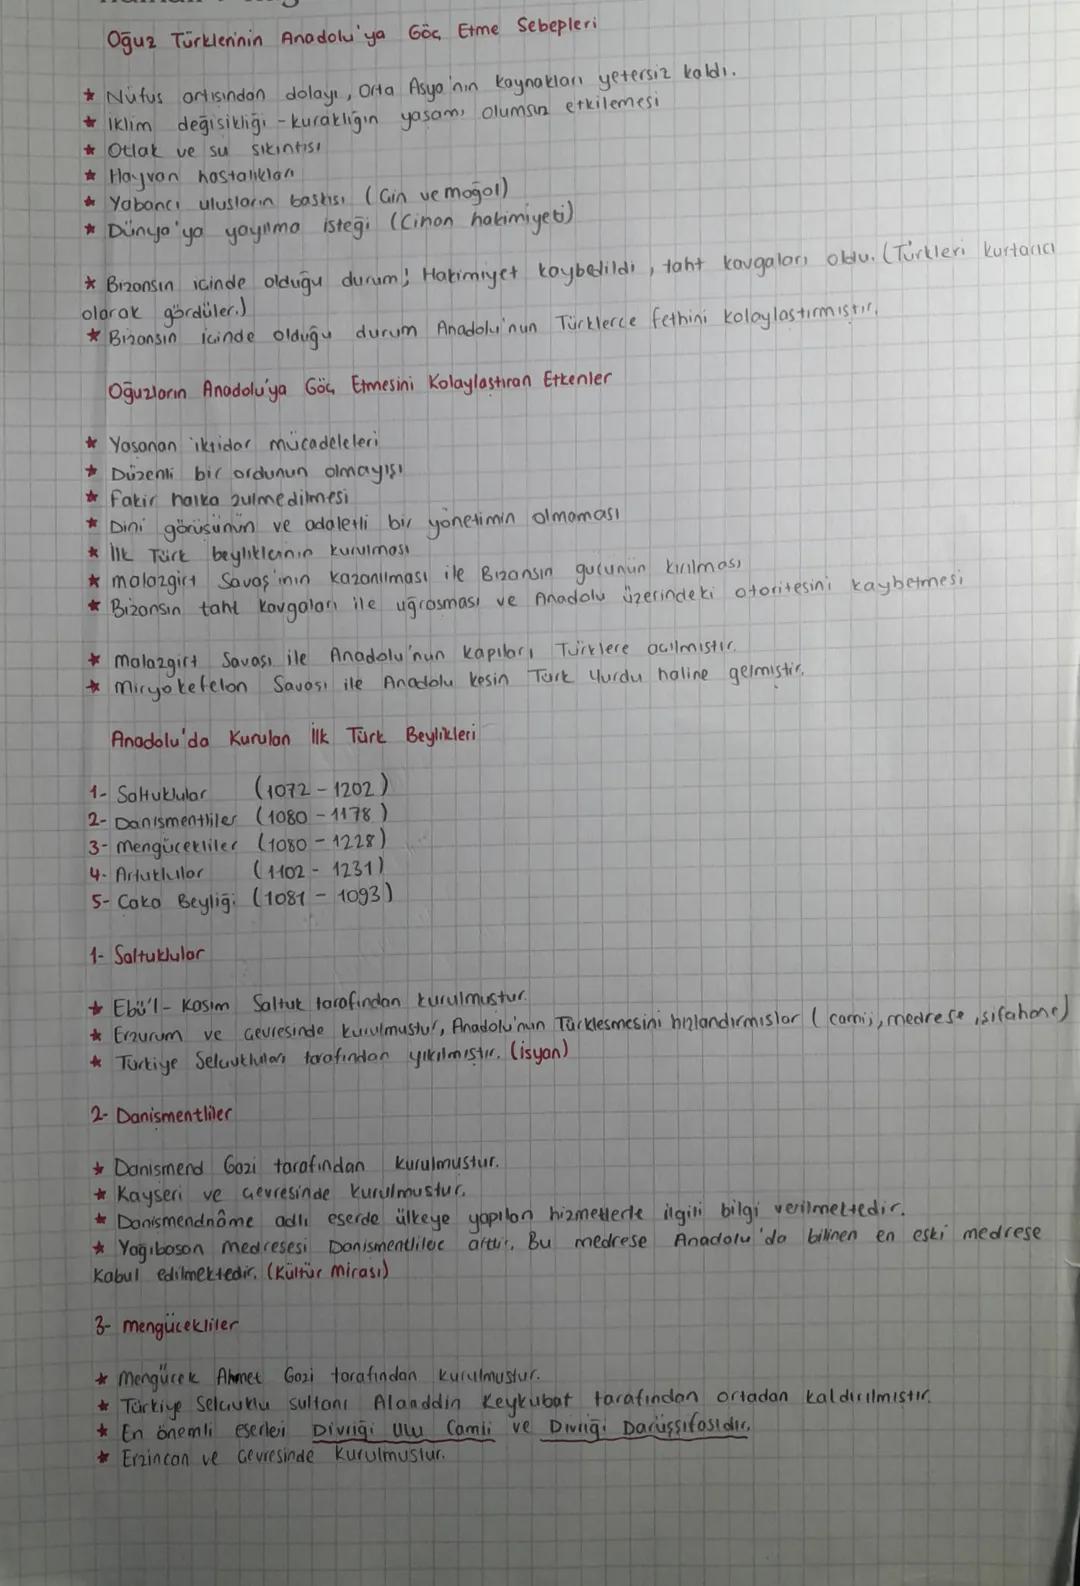 Oğuz Türklerinin Anadolu'ya Göç Etme Sebepleri
* Nüfus artısından dolayı, Orta Asya'nın kaynakları yetersiz kaldı.
* Iklim değişikliği - kuraklığın yaşamı olumsuz etkilemesi
* Otlak ve su sıkıntısı
* Hayvan hastalıkları
* Yabancı ulusların baskısı (Çin ve moğol)
* Dünya'ya yayılma isteği (Cihan hakimiyeti)
* Bizansın içinde olduğu durum; Hakimiyet kaybedildi, taht kavgaları oldu. (Türkleri kurtarıcı
olarak gördüler.)
* Bizansın içinde olduğu durum Anadolu'nun Türklerce fethini kolaylastırmıstır.
Oğuzların Anadolu'ya Göç Etmesini Kolaylaştıran Etkenler
* Yasanan iktidar mücadeleleri
* Düzenli bir ordunun olmayışı
* fakir halka zulmedilmesi
* Dini görüşünün ve adaletli bir yönetimin olmaması
* İlk Türk beyliklerinin kurulması
* malazgirt Savaş'ının kazanılması ile Bizansın gucunun kırılması
* Bizansın taht kavgaları ile uğrasması ve Anadolu üzerindeki otoritesini kaybetmesi
* malazgirt Savası ile Anadolu'nun kapıları Türklere acılmıstır.
* Miryokefelon Savası ile Anadolu kesin Türk Yurdu haline gelmiştir.
Anadolu'da Kurulan İlk Türk Beylikleri
1- Saltuklular (1072 - 1202)
2- Danısmentliler (1080 - 1178)
3- mengücekliler (1080 - 1228)
4- Artuklular (1102 - 1231)
5- Caka Beyliği (1081 - 1093)
1- Saltuklular
* Ebü'l - Kasım Saltuk tarafından kurulmustur.
* Erzurum ve cevresinde kurulmustur, Anadolu'nun Türklesmesini hızlandırmıslar (camii, medrese, sifahane)
* Türkiye Selcukluları tarafından yıkılmıştır. (isyan)
2- Danismentliler
* Danismend Gazi tarafından kurulmustur.
* Kayseri ve cevresinde kurulmustur.
* Danismendnâme adlı eserde ülkeye yapılan hizmetlerle ilgili bilgi verilmektedir.
* Yağıbasan medresesi Danismentlilere aittir. Bu medrese Anadolu'da bilinen en eski medrese
Kabul edilmektedir. (Kültür mirası)
3- mengücekliler
* Mengücek Ahmet Gazi tarafından kurulmustur.
* Türkiye Selcuklu sultanı Alaaddin Keykubat tarafından ortadan kaldırılmıstır.
* En önemli eserleri Divriği Ulu Camii ve Divriği Darüşşıfasıdır.
* Erzincan ve cevresinde kurulmustur.